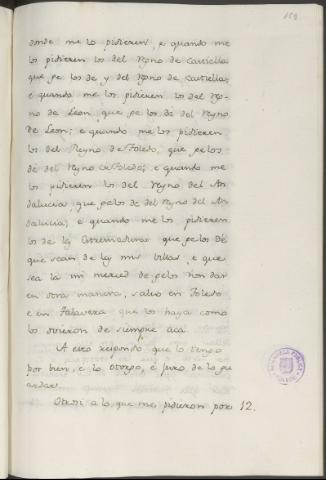 donde me lo pidieren, e quando me
los pidieren los del Reyno de Castiella
que pe los de y del Reyno de Castiella;
e quando me los pidieren los del Rey-
no de Leon, que pelos de del Reyno
de Leon; e quando me los pidieren
los del Reyno de Toledo, que pelos
de del Reyno de Toledo; e quando me
los pidieren los del Reyno del An
dalucia, que pelos de del Reyno del An
dalucia; e quando me los pidieren
los de las Estremaduras que pelos Dé
que sean de las mis Villas, e que
sea la mi merced de pelos non dar
en otra manera, salvo en Toledo
e en Talavera que los haya como
los ovieron de siempre acá.
A esto respondo, que lo tengo
por bien, e lo otorgo, e juro de lo gu
ardar.
Otrosi a lo que me pidieron por 12.